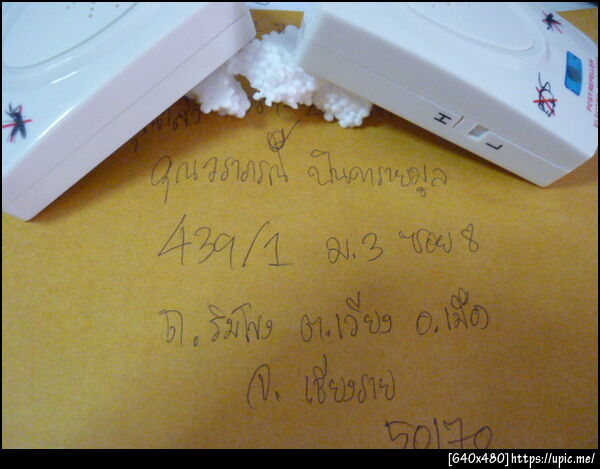 PEST REPELLER
H
L
คุณวราภรณ์ ปินตารายมูล
439/1 ม.3 ซอย 8
ถ.ริมโขง ต.เวียง อ.เมือ
จ. เชียงราย
50170
[640x480]https://upic.me/